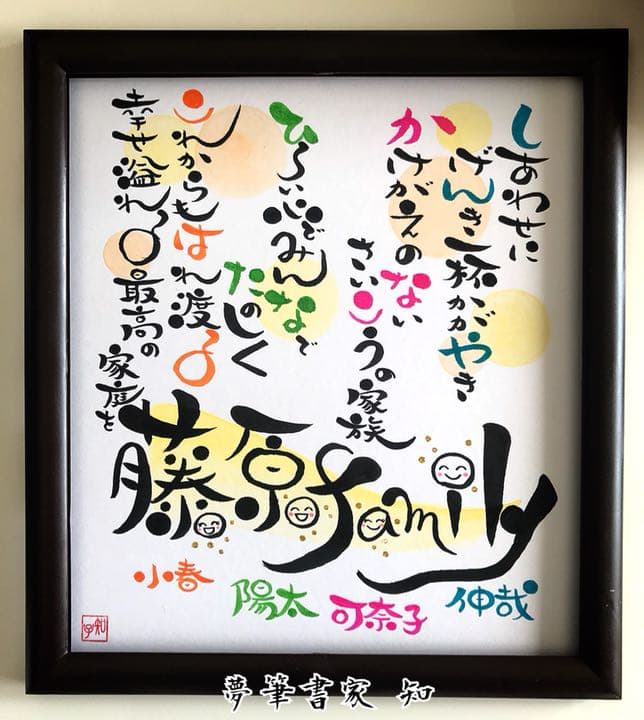 しあわせに
げんき一杯かがやき
かけがえのない
さいこうの家族
ひろい心でみんなで
たのしく
これからもはれ渡る
幸せ溢れる最高の
家庭を
藤原family
小春 陽太 可奈子 伸哉
夢筆書家 知